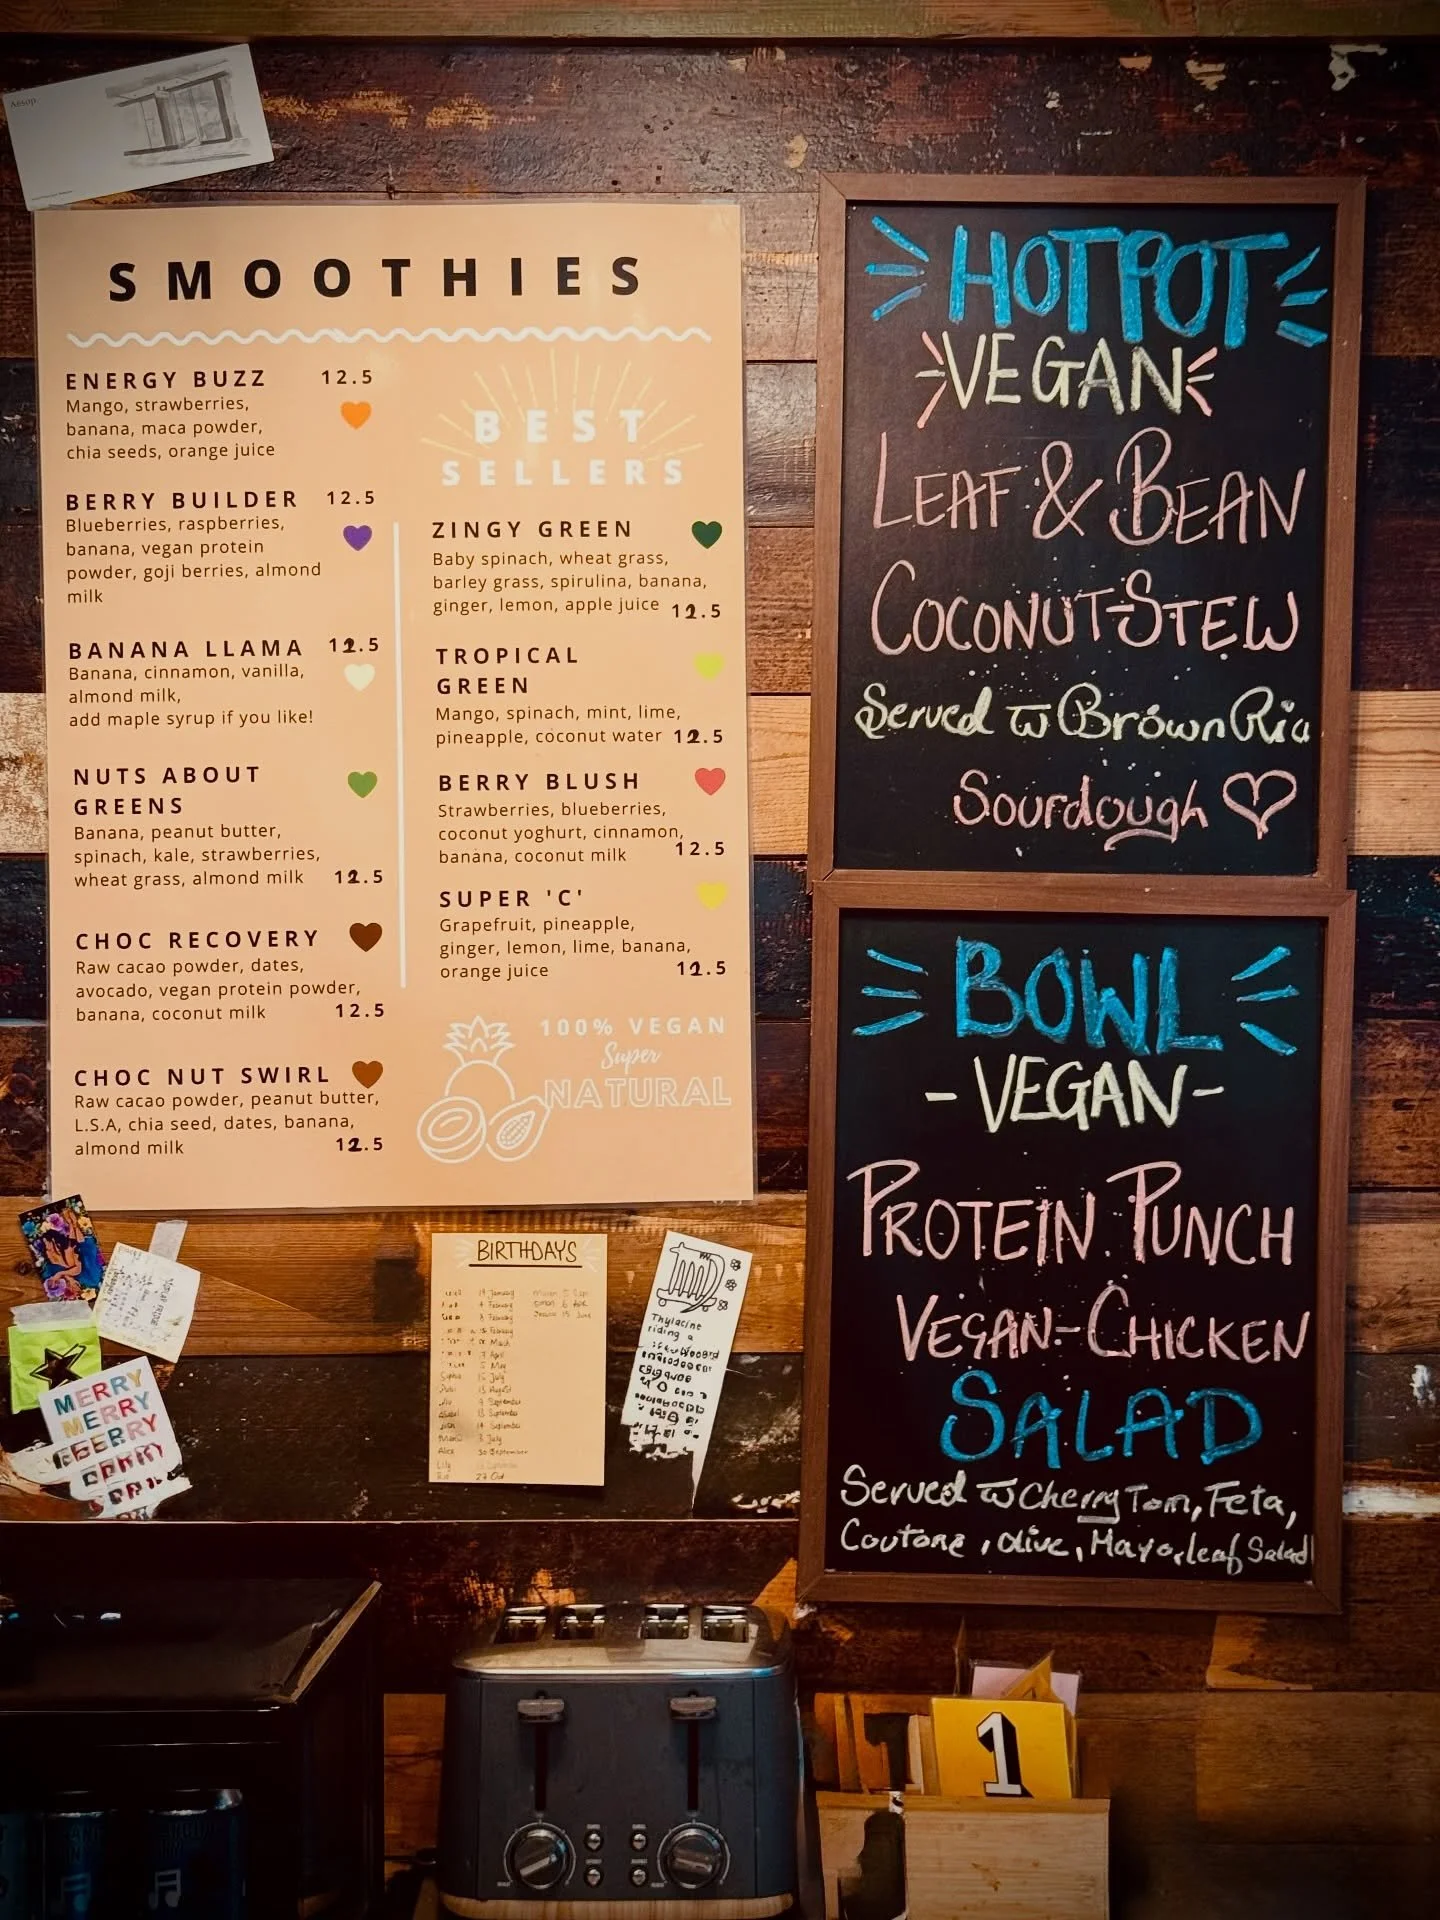 Aesop.
SMOOTHIES
ENERGY BUZZ 12.5
Mango, strawberries,
banana, maca powder,
chia seeds, orange juice
BERRY BUILDER 12.5
Blueberries, raspberries,
banana, vegan protein
powder, goji berries, almond
milk
BANANA LLAMA 12.5
Banana, cinnamon, vanilla,
almond milk,
add maple syrup if you like!
NUTS ABOUT
GREENS
Banana, peanut butter,
spinach, kale, strawberries,
wheat grass, almond milk 12.5
CHOC RECOVERY
Raw cacao powder, dates,
avocado, vegan protein powder,
banana, coconut milk 12.5
CHOC NUT SWIRL
Raw cacao powder, peanut butter,
L.S.A, chia seed, dates, banana,
almond milk 12.5
BEST
SELLERS
ZINGY GREEN
Baby spinach, wheat grass,
barley grass, spirulina, banana,
ginger, lemon, apple juice 12.5
TROPICAL
GREEN
Mango, spinach, mint, lime,
pineapple, coconut water 12.5
BERRY BLUSH
Strawberries, blueberries,
coconut yoghurt, cinnamon,
banana, coconut milk 12.5
SUPER 'C'
Grapefruit, pineapple,
ginger, lemon, lime, banana,
orange juice 12.5
100% VEGAN
Super
NATURAL
HOTPOT
VEGAN
LEAF & BEAN
COCONUT-STEW
Served w Brown Ria
Sourdough
BOWL
-VEGAN-
PROTEIN PUNCH
VEGAN-CHICKEN
SALAD
Served w Cherry Tom, Feta,
Coutone, olive, Mayo, leaf Salad
BIRTHDAYS
14 January
4 February
8 February
February
March
7 April
5 May
Sophie 15 July
13 August
9 September
13 September
14 September
3 July
Alex 30 September
Lily
27 Oct
Thylacine
riding a
MERRY
MERRY
BERRY
1